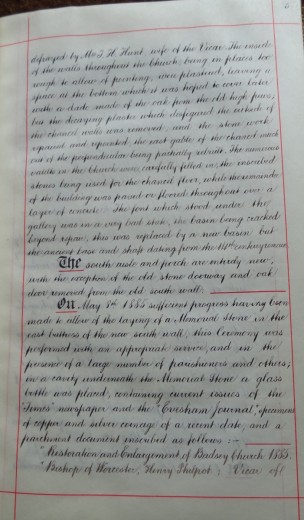 defrayed by Mrs T. H. Hunt, wife of the Vicar. The inside
of the walls throughout the Church, being in places too
rough to allow of pointing, were plastered, leaving a
space at the bottom which it was hoped to cover later
with a dado made of the oak from the old high pews,
but the decaying plaster which disfigured the outside of
the chancel walls was removed, and the stone work
repaired and repointed, the east gable of the chancel much
out of the perpendicular being partially rebuilt. The numerous
vaults in the Church were carefully filled in, the inscribed
stones being used for the chancel floor, while the remainder
of the building was paved or floored throughout over a
layer of concrete. The font which stood under the
gallery was in a very bad state, the basin being cracked
beyond repair, this was replaced by a new basin, but
the ancient base and shaft dating from the 14th century remain.
The south aisle and porch are entirely new,
with the exception of the old stone doorway and oak
door removed from the old south wall.
On May 8th 1885 sufficient progress having been
made to allow of the laying of a Memorial Stone in the
east buttress of the new south wall, this Ceremony was
performed with an appropriate service, and in the
presence of a large number of parishioners and others;
in a cavity underneath the Memorial Stone a glass
bottle was placed, containing current issues of the
"Times" newspaper and the "Evesham Journal," specimens
of copper and silver coinage of a recent date, and a
parchment document inscribed as follows :—
"Restoration and Enlargement of Badsey Church 1885.
"Bishop of Worcester, Henry Philpot; Vicar of